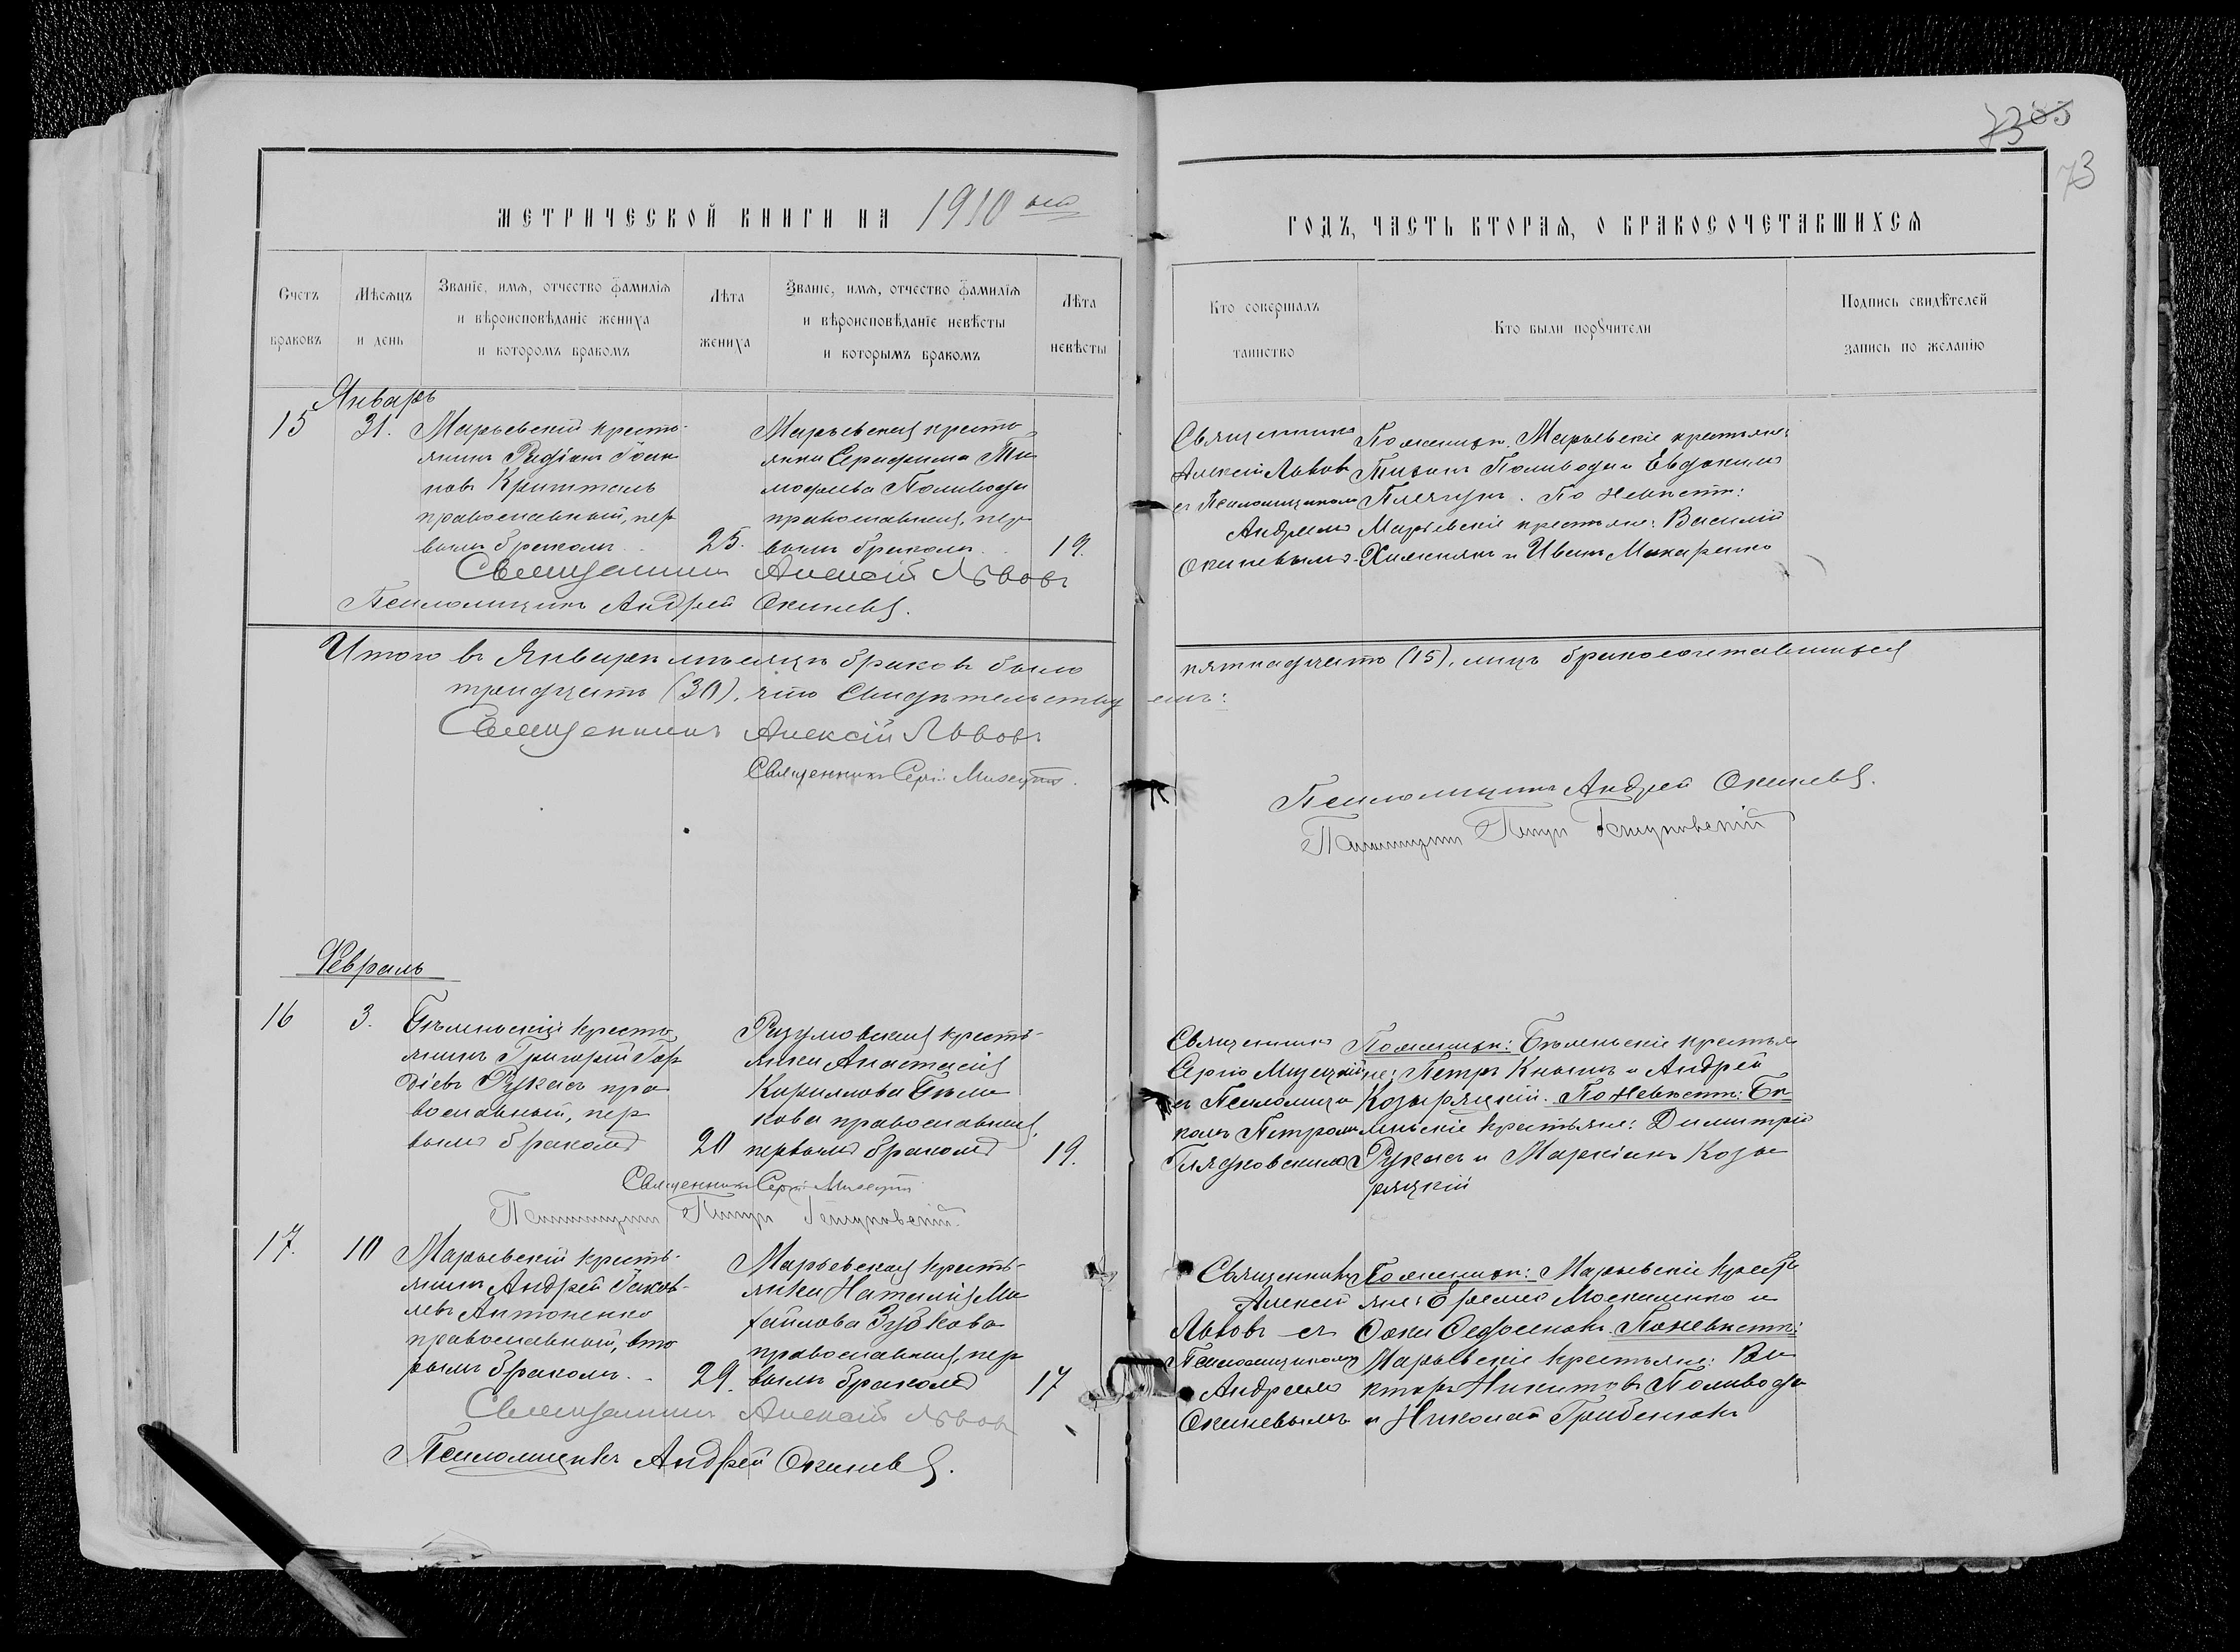 73
МЕТРИЧЕСКОЙ КНИГИ НА 1910 ый
ГОДЪ, ЧАСТЬ ВТОРАЯ, О БРАКОСОЧЕТАВШИХСЯ
Счетъ
браковъ
Мѣсяцъ
и день
Званіе, имя, отчество фамилія
и вѣроисповѣданіе жениха
и которомъ бракомъ
Лѣта
жениха
Званіе, имя, отчество фамилія
и вѣроисповѣданіе невѣсты
и которымъ бракомъ
Лѣта
невѣсты
Кто совершалъ
таинство
Кто были порꙋчители
Подпись свидѣтелей
запись по желанію
Январь
15
31.
Марьевскій кресть-
янинъ Іоан
новъ
православный, пер
вымъ бракомъ
25.
Марьевская кресть-
янка Серафима Ти
мофеева Поливода
православная, пер
вымъ бракомъ
19.
Священникъ
Алексій Львовъ
съ Псаломщикомъ
Андреемъ
Окиневымъ.
По женихѣ: Марьевскіе крестьяне:
Поливода и Евдокимъ
По невѣстѣ:
Марьевскіе крестьяне: Василій
и Иванъ Макаренко
Священникъ Алексій Львовъ
Псаломщикъ Андрей Окиневъ.
Итого въ Январѣ мѣсяцѣ браковъ было
пятнадцать (15), лицъ бракосочетавшихся
тридцать (30), что свидѣтельству
емъ:
Священникъ Алексій Львовъ
Священникъ Сергій Мизецкій.
Псаломщикъ Андрей Окиневъ.
Псаломщикъ Петръ
Февраль
16
3.
Бѣленьскій кресть-
янинъ Григорій Гор
діевъ пра
вославный, пер
вымъ бракомъ
20
Разумовская кресть-
янка Анастасія
Кириллова
кова православная,
первымъ бракомъ
19.
Священникъ
Сергій Мизецкій
съ Псаломщи
комъ Петромъ
По женихѣ: Бѣленьскіе крестья
не: Петръ и Андрей
Козыряцкій. По невѣстѣ: Бѣ
леньскіе крестьяне: Димитрій
и Маркіанъ Козы
ряцкій
Священникъ Сергій Мизецкій
Псаломщикъ Петръ
17.
10
Марьевскій кресть-
янинъ Андрей Іаков-
левъ Антоненко
православный, вто
рымъ бракомъ.
29.
Марьевская кресть-
янка Наталія Ми
хайлова Зубкова
православная, пер
вымъ бракомъ
17
Священникъ
Алексій
Львовъ съ
Псаломщикомъ
Андреемъ
Окиневымъ
По женихѣ: Марьевскіе кресть
яне: Ефремъ Москаленко и
По невѣстѣ:
Марьевскіе крестьяне: Ви
кторъ Никитовъ Поливода
и Николай Грибенюкъ
Священникъ Алексій Львовъ
Псаломщикъ Андрей Окиневъ.